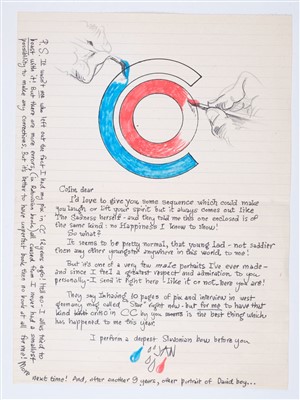 Colin dear
I'd love to give you some sequence which could make
you laugh or lift your spirit but it always comes out like
The Sadness herself - and they told me this one enclosed is of
the same kind: no Happiness I know to show!
So what?
It seems to be pretty normal, that young lad - not sadder
than any other youngster anywhere in this world, to me!
But it's one of a very few male portraits I've ever made
and since I feel a greatest respect and admiration, to you
personally - I send it right here - like it or not.. here you are!
They say I'm having 10 pages of pix and interview in west
germany mag called "Star" right now - but for me to have that
kind in CC by you is the best thing which
has happened to me this year.
I perform a deepest Slavonian bow before you
next time! And, after another 9 years, other portrait of David boy...
P.S. It won't me who left out the fact I had my pix in CC years ago! No - I also used to
boast with it! But there are more errors, (in Rotovision books, all caused from I never had a smallest
possibility to make any corrections, but it's better to have imperfect book than no book at all for me! More